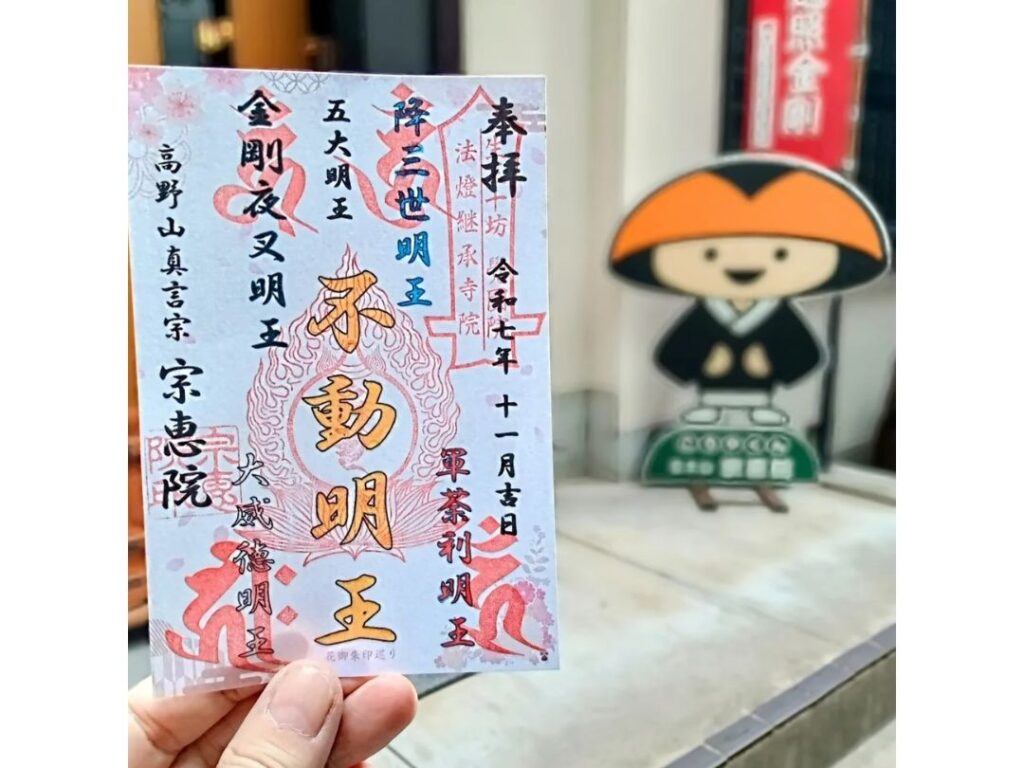 奉拝
令和七年 十一月吉日
法燈継承寺院
降三世明王
軍荼利明王
五大明王
不動明王
金剛夜叉明王
大威徳明王
高野山真言宗 宗恵院
宗恵
花御朱印巡り
照金剛
こうやくん